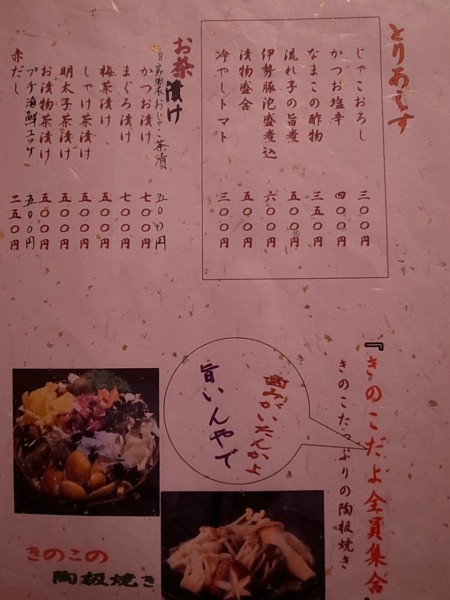 とりあえず
じゃこおろし 三〇〇円
かつお塩辛 四〇〇円
なまこの酢物 三五〇円
流れ子の旨煮 五〇〇円
伊勢豚泡盛煮込 六〇〇円
漬物盛合 五〇〇円
冷やしトマト 三〇〇円
お茶漬け
自家製おじゃこ茶漬 五〇〇円
かつお漬け 七〇〇円
まぐろ漬け 七〇〇円
梅茶漬け 五〇〇円
しゃけ茶漬け 五〇〇円
明太子茶漬け 五〇〇円
お漬物茶漬け 五〇〇円
プチ海鮮ユッケ 五〇〇円
赤だし 二五〇円
『きのこだよ全員集合
きのこたっぷりの陶板焼き
歯みがいたんかよ
旨いんやで
きのこの
陶板焼き